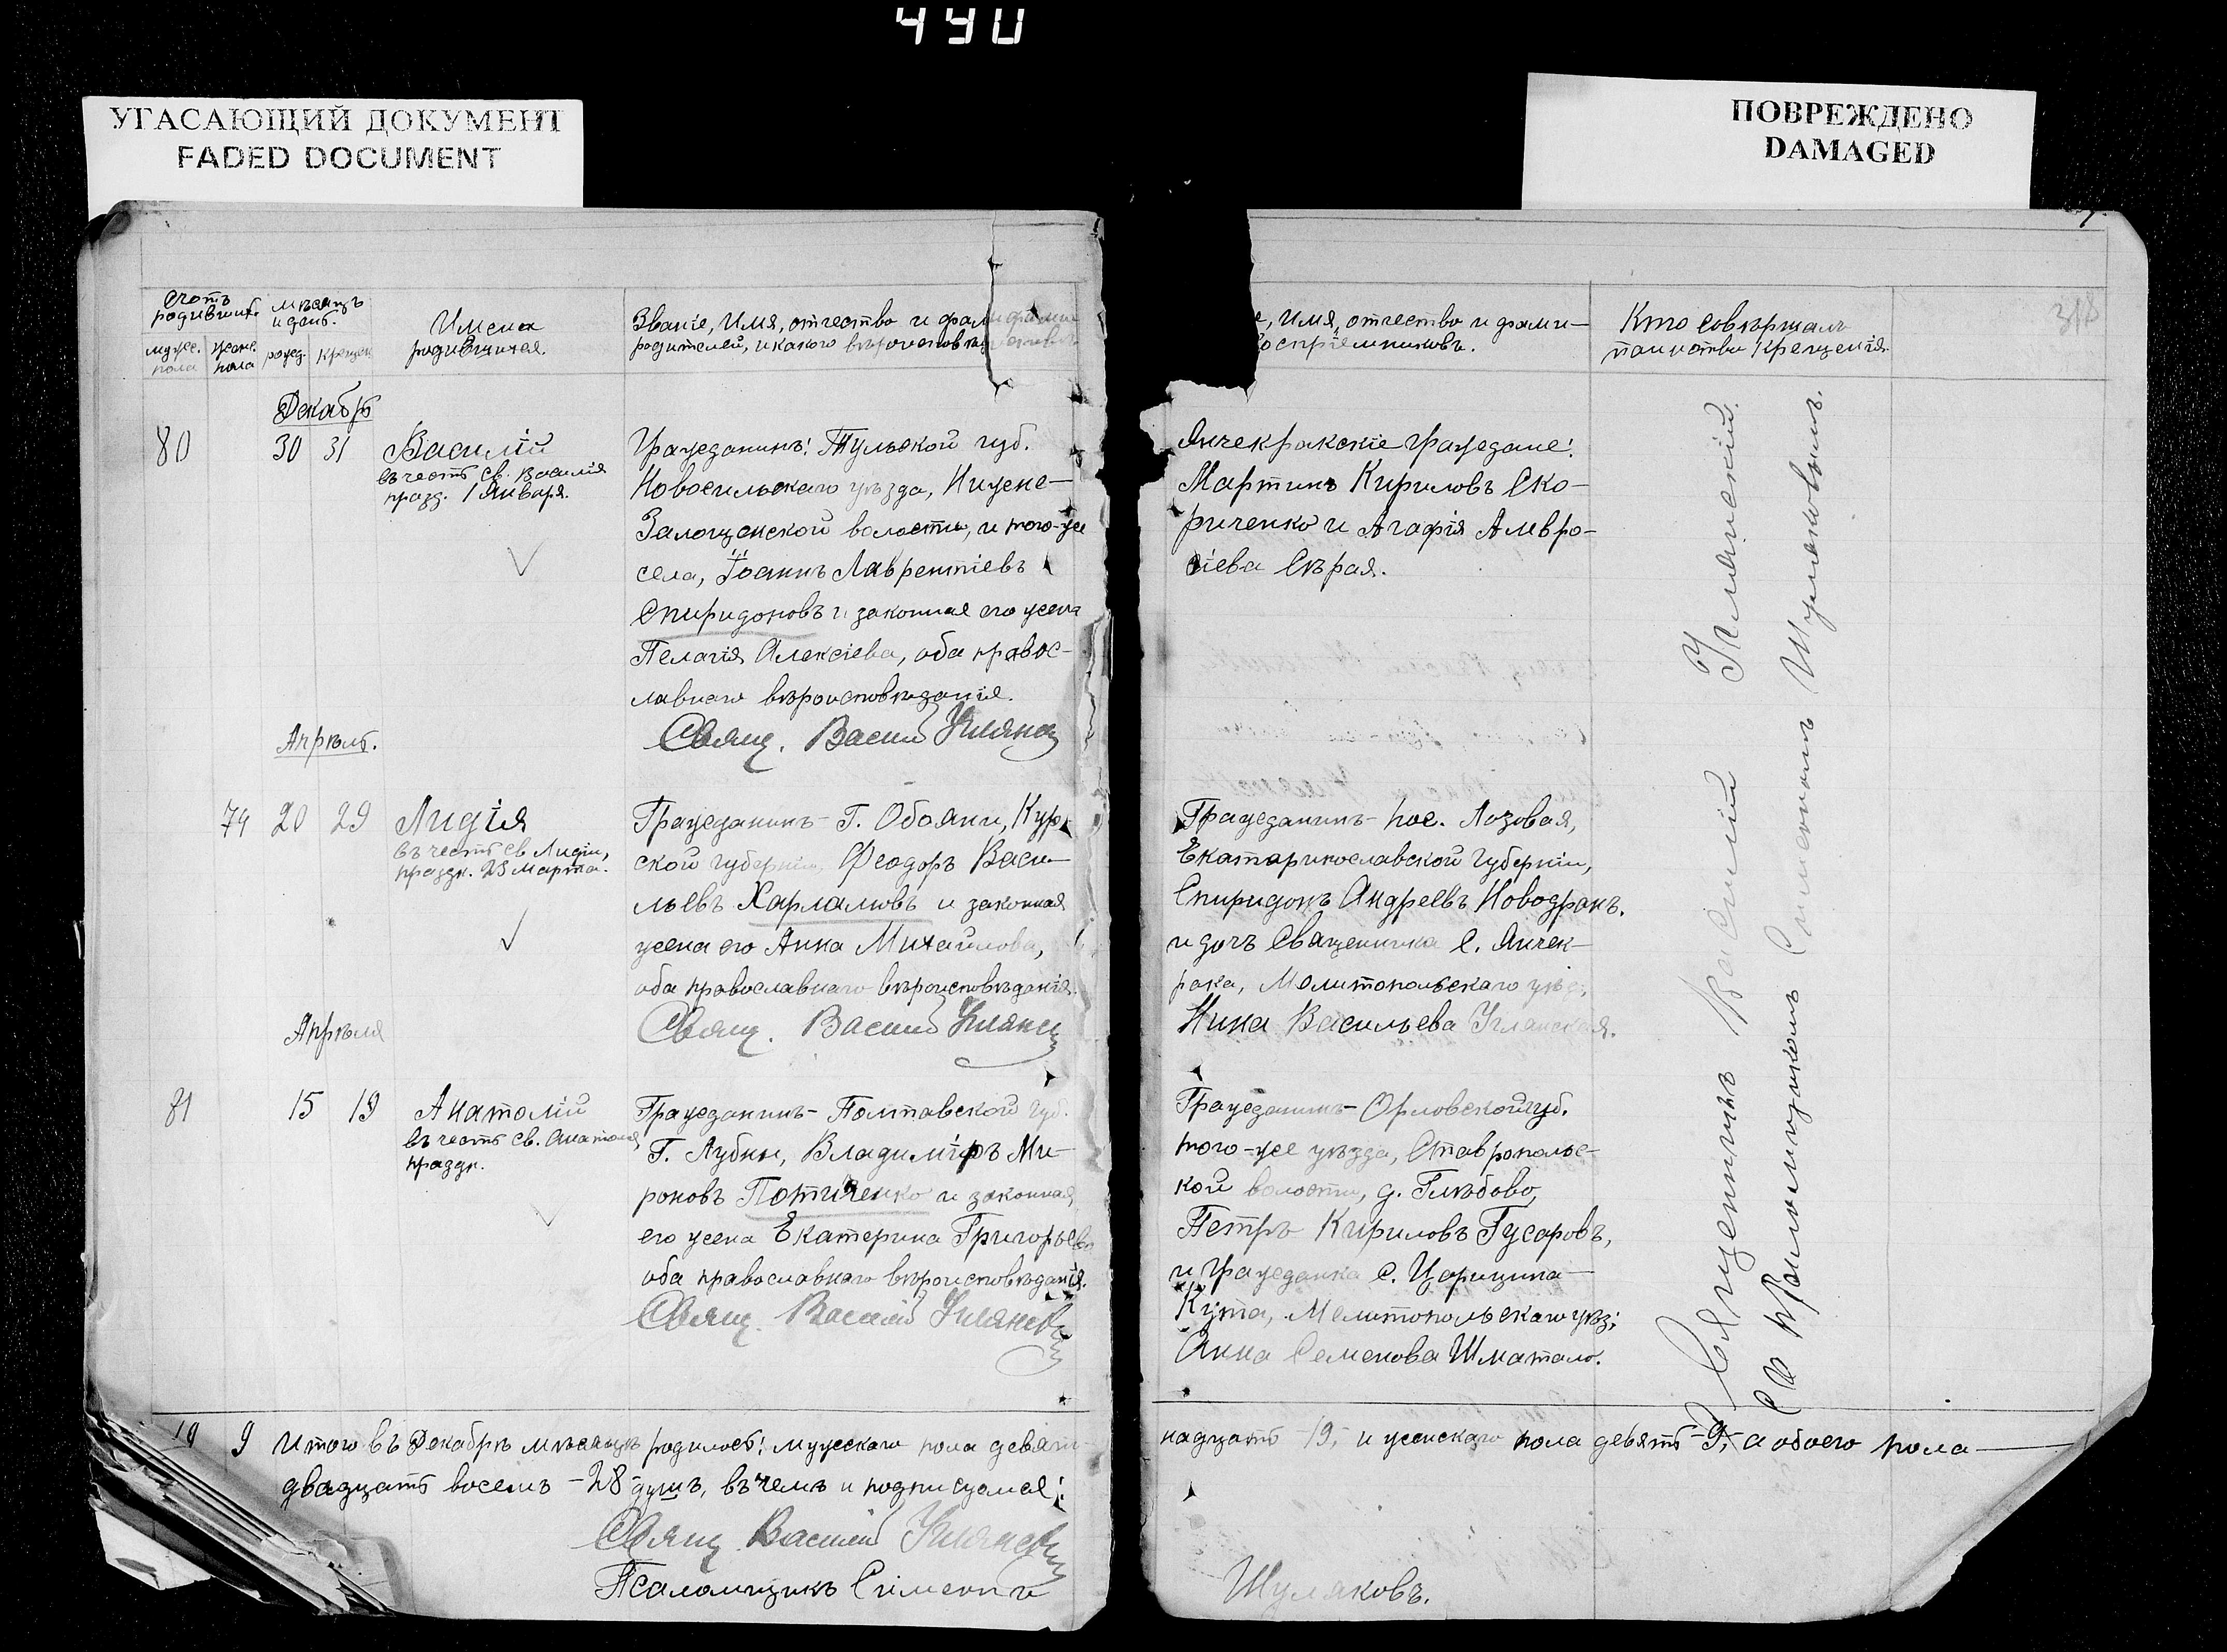 490
УГАСАЮЩИЙ ДОКУМЕНТ
FADED DOCUMENT
ПОВРЕЖДЕНО
DAMAGED
318
Счотъ родивших.
мѣсяцъ и день.
мужес. пола
женс. пола
рожд.
крещен
Имена родившихся.
Званіе, Имя, отчество и фамиліи
родителей, и какого вѣроисповѣданія
е, имя, отчество и фами-
оспріемниковъ.
Кто совершалъ
таинство Крещенія.
Декабрь
80 30 31 Василій
въ честь св. Василія
празд. 1 Января.
Гражданинъ: Тульской губ.
Новосильскаго уѣзда, Нижне-
Залощенской волости, и того-же
села, Іоаннъ Лаврентіевъ
Спиридоновъ и законная его жена
Пелагія Алексіева, оба правос-
лавнаго вѣроисповѣданія.
Свящ. Василій Углянск
Янчекракскіе граждане:
Мартинъ Кириловъ Ско-
риченко и Агафія Амвро-
сіева Сѣрая.
Апрѣль.
74 20 29 Лидія
въ честь св Лидіи,
праздн. 23 Марта.
Гражданинъ - Г. Обояни, Кур
ской губерніи, Феодоръ Васи-
льевъ Харламовъ и законная
жена его Анна Михайлова,
оба православнаго вѣроисповѣданія.
Свящ. Василій Углянск
Гражданинъ - пос. Лозовая,
Екатеринославской губерніи,
Спиридонъ Андреевъ Новодранъ.
и дочъ Священника С. Янчек-
рака, Мелитопольскаго уѣз.,
Нина Васильева Углянская.
Апрѣля
81 15 19 Анатолій
въ честь св. Анатолія
праздн.
Гражданинъ - Полтавской губ.
Г. Лубны, Владиміръ Ми-
роновъ Потиченко и законная
его жена Екатерина Григорьева
оба православнаго вѣроисповѣданія.
Свящ. Василій Углянск
Гражданинъ - Орловской губ.
того-же уѣзда, Ставрополь-
кой волости, д. Глѣбово,
Петръ Кириловъ Гусаровъ,
и гражданка с. Царицина-
Кута, Мелитопольскаго уѣз;
Анна Семенова Шматало.
Священникъ Василій Углянскій.
Съ псаломщикомъ Симеономъ Шулаковымъ.
19 9 Итого въ Декабрѣ мѣсяцѣ родилось: мужескаго пола девят-
надцать 19, и женскаго пола девять - 9, а обоего пола
двадцать восемъ - 28 душъ, въ чемъ и подписуемся:
Свящ. Василій Углянск
Псаломщикъ Симеонъ
Шулаковъ.